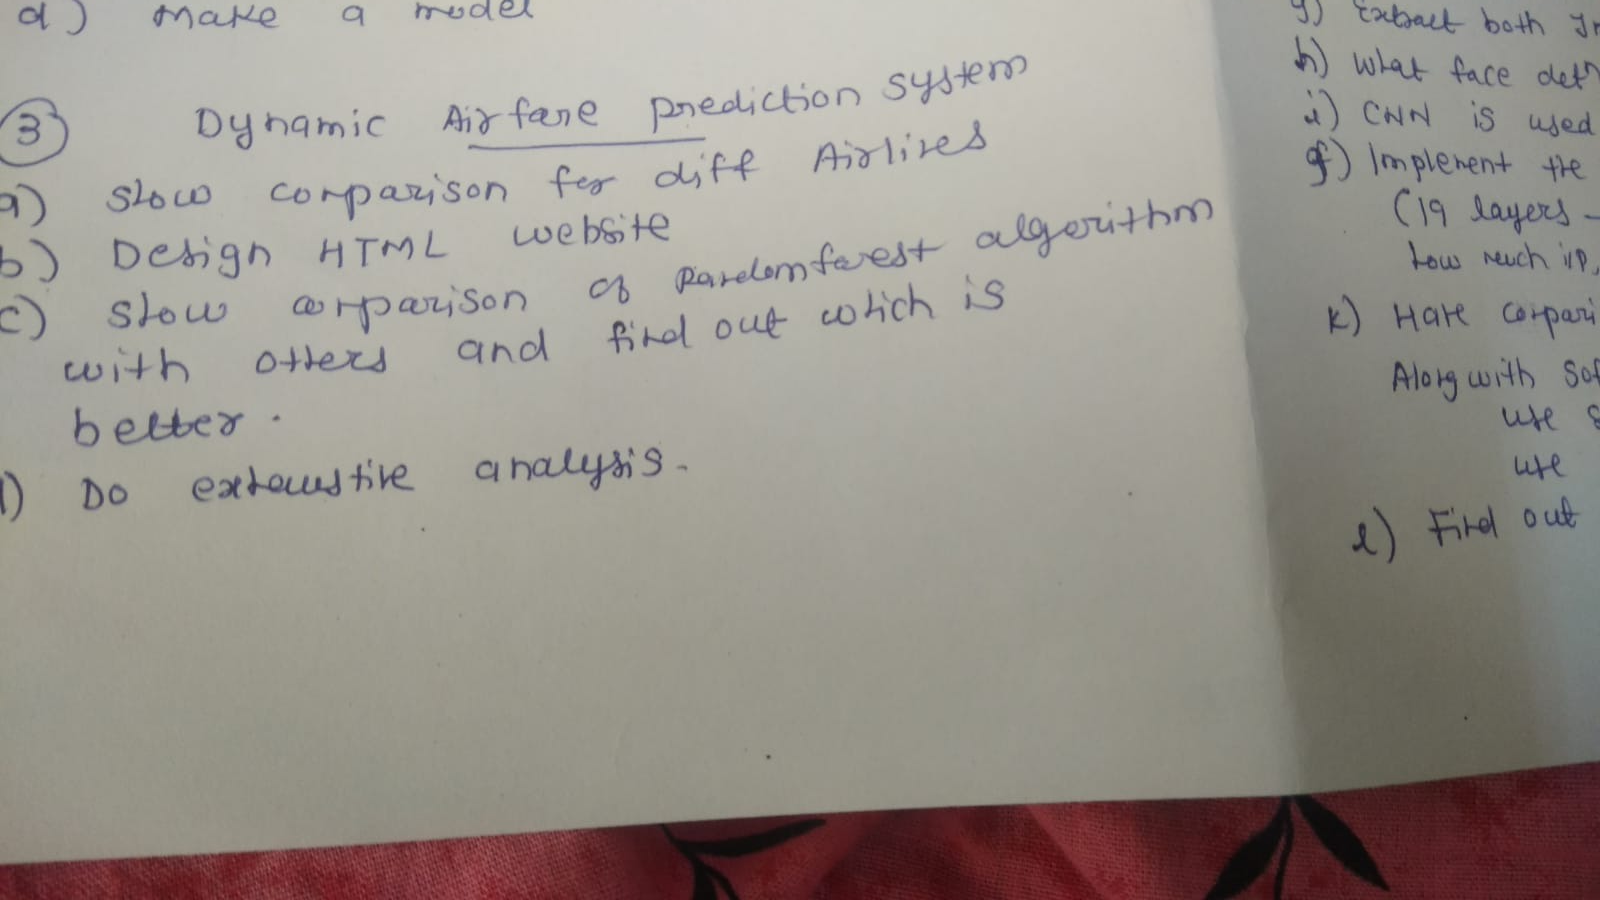 d) Make a model
3 Dynamic Airfare prediction system
a) Show comparison for diff Airlines
b) Design HTML website
c) Show comparison of Randomforest algorithm
with others and find out which is
better.
d) Do exhaustive analysis.
g) Extract both
h) What face
i) CNN is used
Implement the
(19 layers -
how much i/p,
k) Have
Along with
use
use
l) Find out